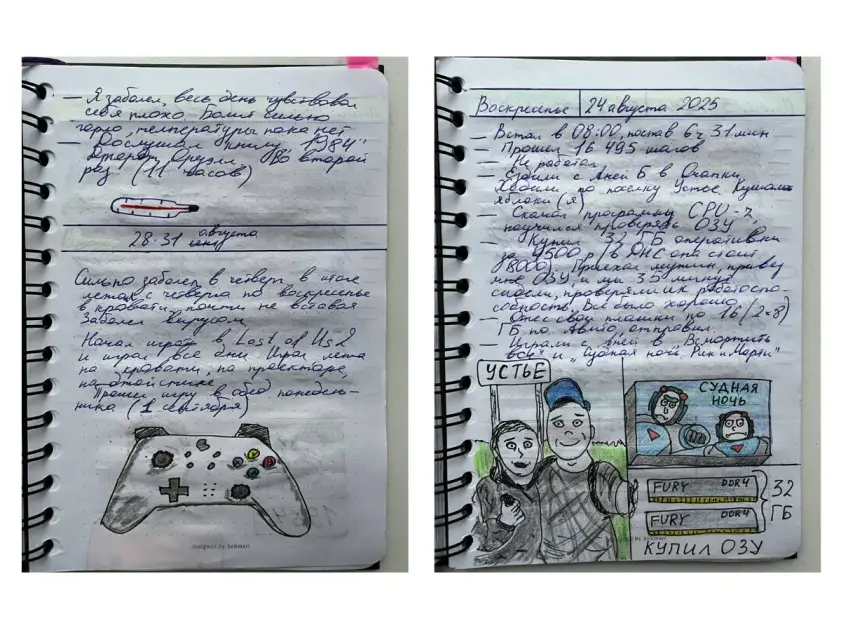 — Я заболел, весь день чувствовал
себя плохо Болит сильно
горло, температуры пока нет
— Дослушал книгу "1984"
Джордж Оруэлл. Во второй
раз (11 часов)
28-31 августа
Сильно заболел в четверг в итоге
лежал с четверга по воскресенье
в кровати, почти не вставая
Заболел вирусом
Начал играть в Last of Us 2
и играл все дни Играл лежа
на кровати, на проекторе,
на джойстике
Прошел игру в обед понедель-
ника (1 сентября)
designed by bebmari
Воскресенье 24 августа 2025
— Встал в 08:00, поспав 6 ч 31 мин
— Прошел 16 495 шагов
— Не работал
— Ездили с Аней Б в
по поселку Устье Кушали
яблоки (я)
— Скачал программу CPU-Z,
научился проверять ОЗУ
— Купил 32 ГБ оперативки
за 4500 р (в ДНС она стоит
8000) Приехал мужчина, привез
мне ОЗУ, и мы 35 минут
сидели, проверяли их работоспо-
собность, Все было хорошо
— Отнес свои плашки по 16 (2×8)
ГБ по Авито, отправил
— Играли с Аней в "Вспомнить
всё" и "Судная ночь Рик и Морти"
УСТЬЕ
СУДНАЯ
НОЧЬ
FURY DDR4
FURY DDR4
32
ГБ
by bebmari
КУПИЛ ОЗУ